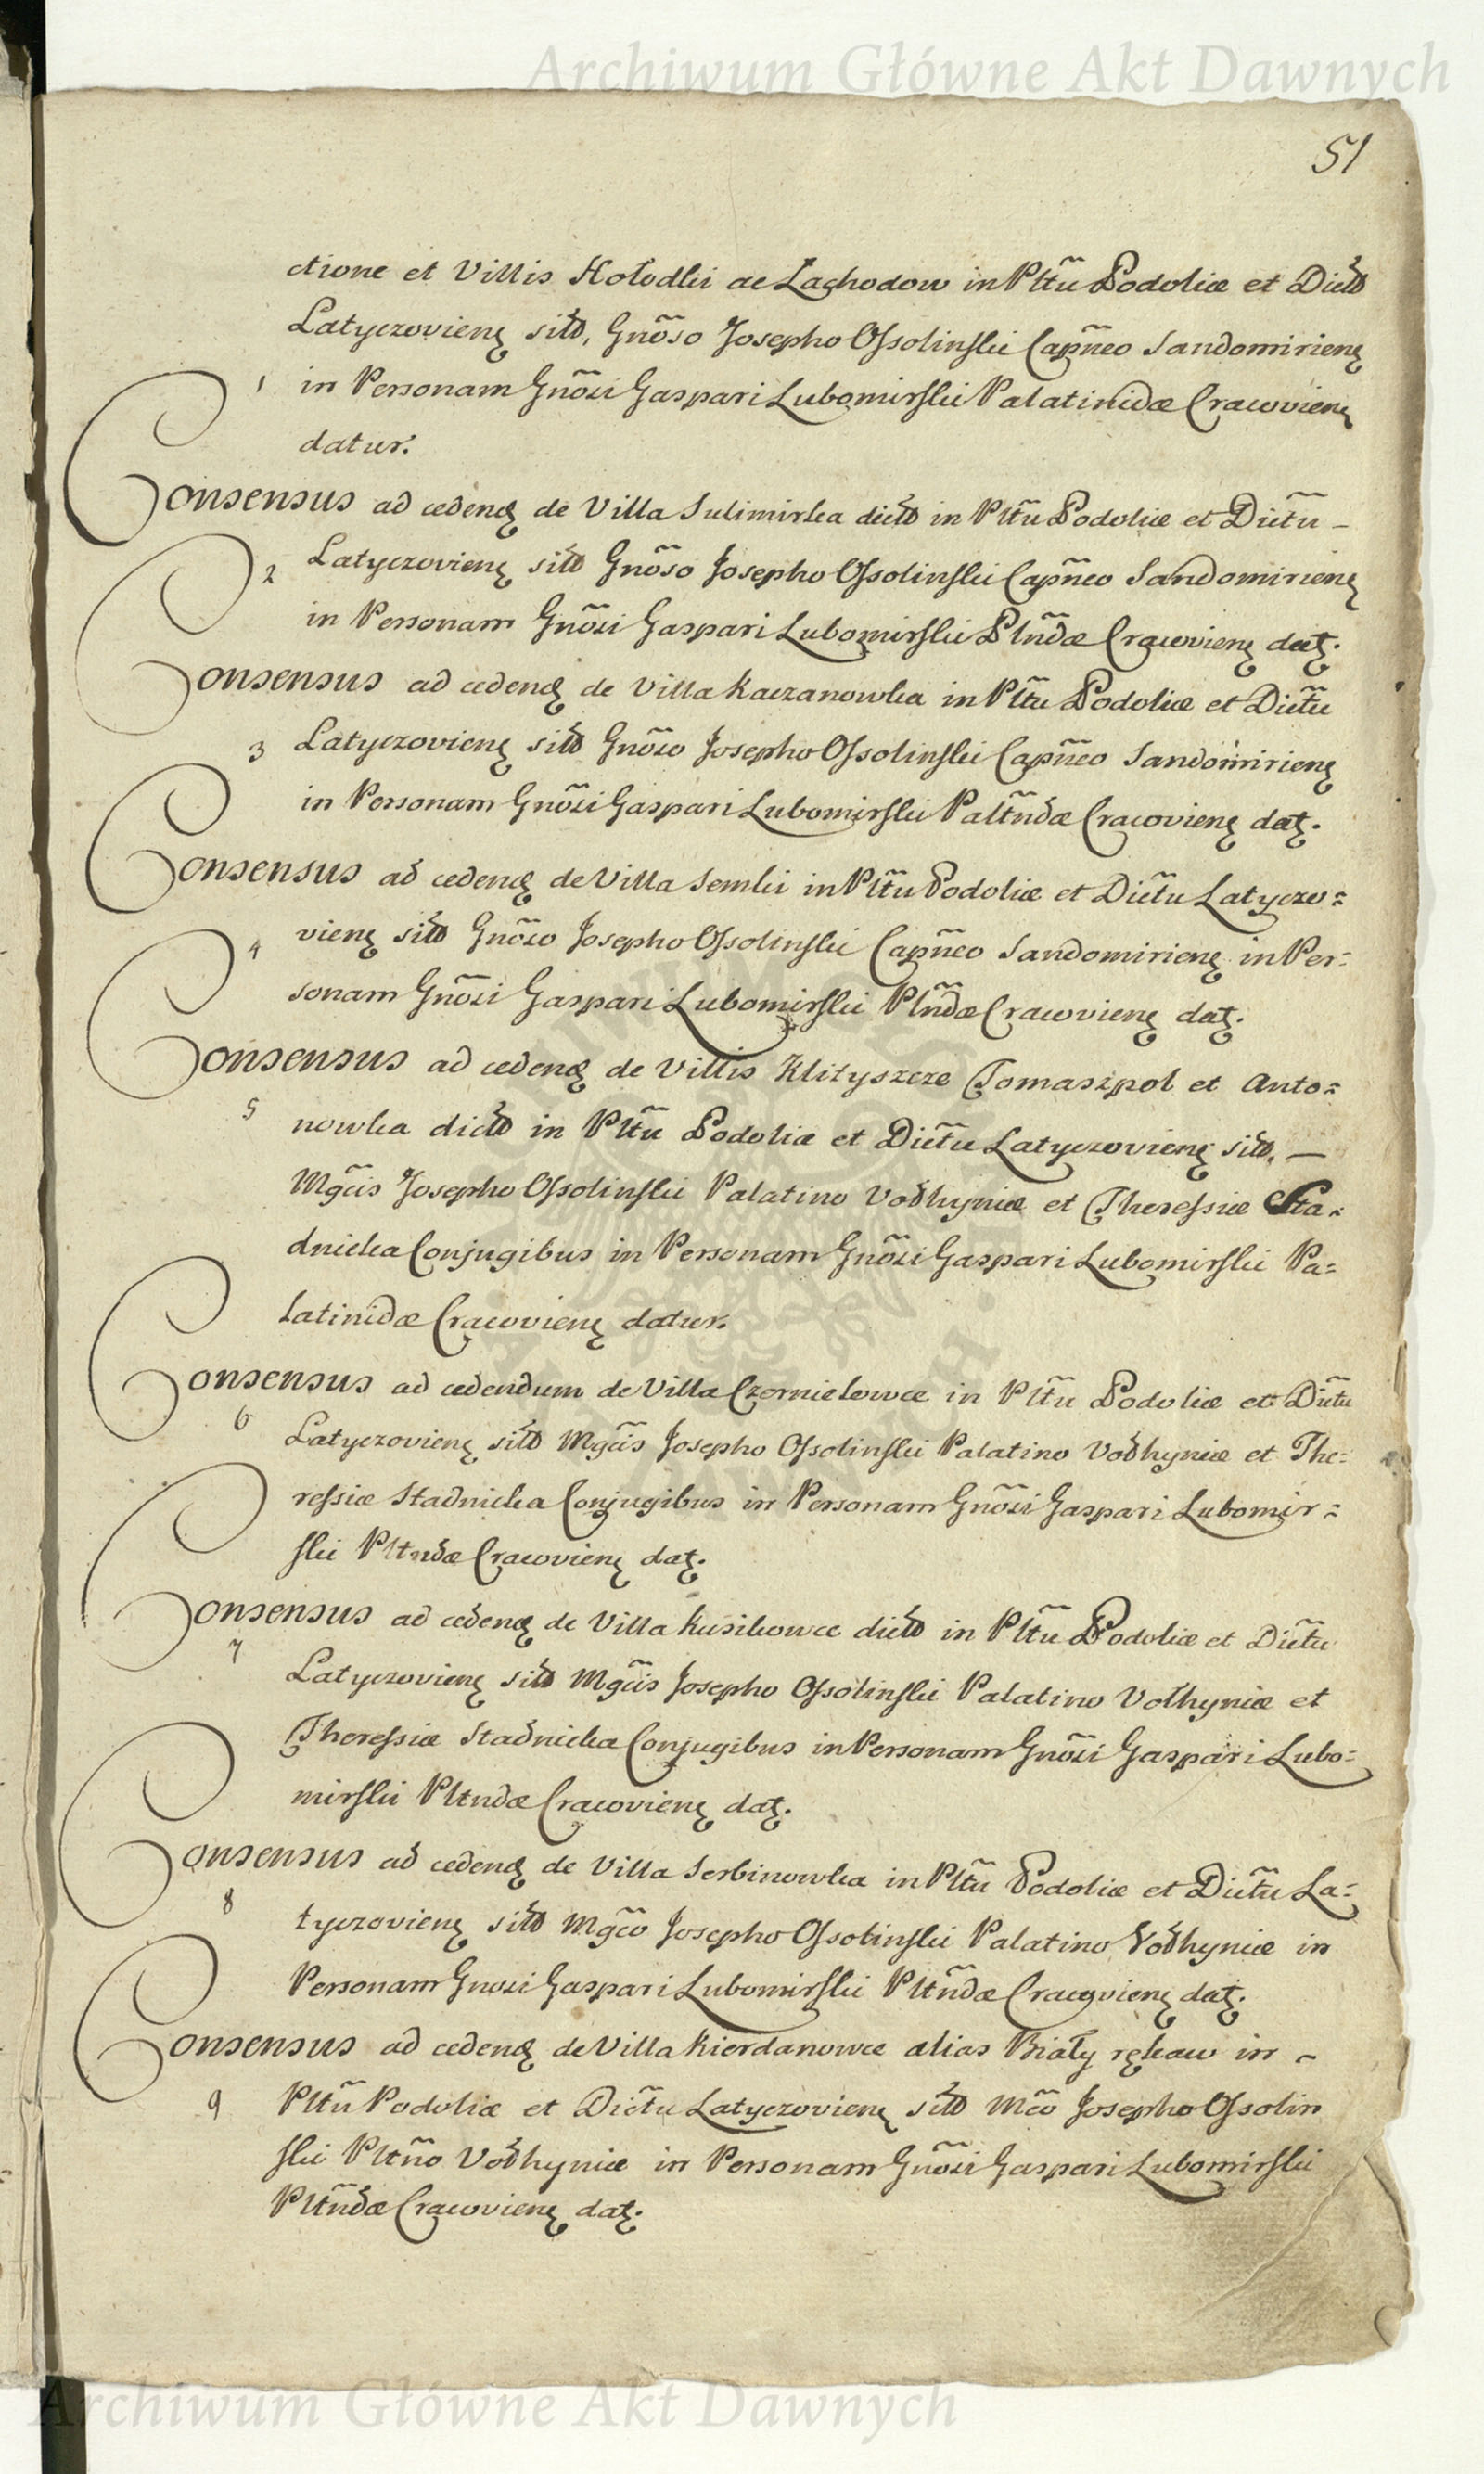 Archiwum Główne Akt Dawnych
51
ctione et Villis Hołodki ac Lachodow in Pltũ Podoliæ et Dictũ
Latyczovien sitõ, Gnõso Josepho Ossolinski Capñeo Sandomirien
1 in Personam Gnõsi Gaspari Lubomirski Palatinidæ Cracovien
datur.
Consensus ad ceden de Villa Sulimirka dictõ in Pltũ Podoliæ et Dictũ –
2 Latyczovien sitõ Gnõso Josepho Ossolinski Capñeo Sandomirien
in Personam Gnõsi Gaspari Lubomirski Plñdæ Cracovien dat.
Consensus ad ceden de Villa Kaczanowka in Pltũ Podoliæ et Dictũ
3 Latyczovien sitõ Gnõso Josepho Ossolinski Capñeo Sandomirien
in Personam Gnõsi Gaspari Lubomirski Paltñdæ Cracovien dat.
Consensus ad ceden de Villa Semki in Pltũ Podoliæ et Dictũ Latyczo=
4 vien sitõ Gnõso Josepho Ossolinski Capñeo Sandomirien in Per=
sonam Gnõsi Gaspari Lubomirski Plñdæ Cracovien dat.
Consensus ad ceden de Villis Klityszcze Tomaszpol et Anto=
5 nowka dictõ in Pltũ Podoliæ et Dictũ Latyczovien sitõ. —
Mgcĩs Josepho Ossolinski Palatino Vołhyniæ et Theressiæ Sta=
dnicka Conjugibus in Personam Gnõsi Gaspari Lubomirski Pa=
latinidæ Cracovien datur.
Consensus ad cedendum de Villa Czernielowce in Pltũ Podoliæ et Dictũ
6 Latyczovien sitõ Mgcĩs Josepho Ossolinski Palatino Vołhyniæ et The=
ressiæ Stadnicka Conjugibus in Personam Gnõsi Gaspari Lubomir=
ski Pltndæ Cracovien dat.
Consensus ad ceden de Villa Kusikowce dictõ in Pltũ Podoliæ et Dictũ
7 Latyczovien sitõ Mgcĩs Josepho Ossolinski Palatino Vołhyniæ et
Theressiæ Stadnicka Conjugibus in Personam Gnõsi Gaspari Lubo=
mirski Pltndæ Cracovien dat.
Consensus ad ceden de Villa Serbinowka in Pltũ Podoliæ et Dictũ La=
8 tyczovien sitõ Mgcõ Josepho Ossolinski Palatino Vołhyniæ in
Personam Gnosi Gaspari Lubomirski Pltñdæ Cracovien dat.
Consensus ad ceden de Villa Kierdanowce alias Biały rękaw in –
9 Pltũ Podoliæ et Dictũ Latyczovien sitõ Mcõ Josepho Ossolin
ski Pltño Vołhyniæ in Personam Gnõsi Gaspari Lubomirski
Pltñdæ Cracovien dat.
Archiwum Główne Akt Dawnych